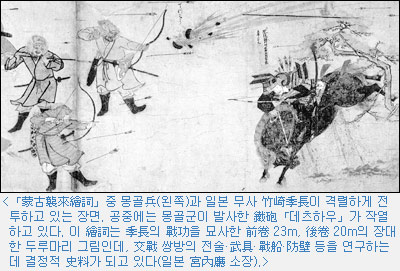 <「蒙古襲來繪詞」중 몽골兵(왼쪽)과 일본 무사 竹崎季長이 격렬하게 전
투하고 있는 장면. 공중에는 몽골군이 발사한 鐵砲「데츠하우」가 작열
하고 있다. 이 繪詞는 季長의 戰功을 묘사한 前卷 23m, 後卷 20m의 장대
한 두루마리 그림인데, 交戰 쌍방의 전술·武具·戰船·防壁 등을 연구하는
데 결정적 史料가 되고 있다(일본 宮內廳 소장).>